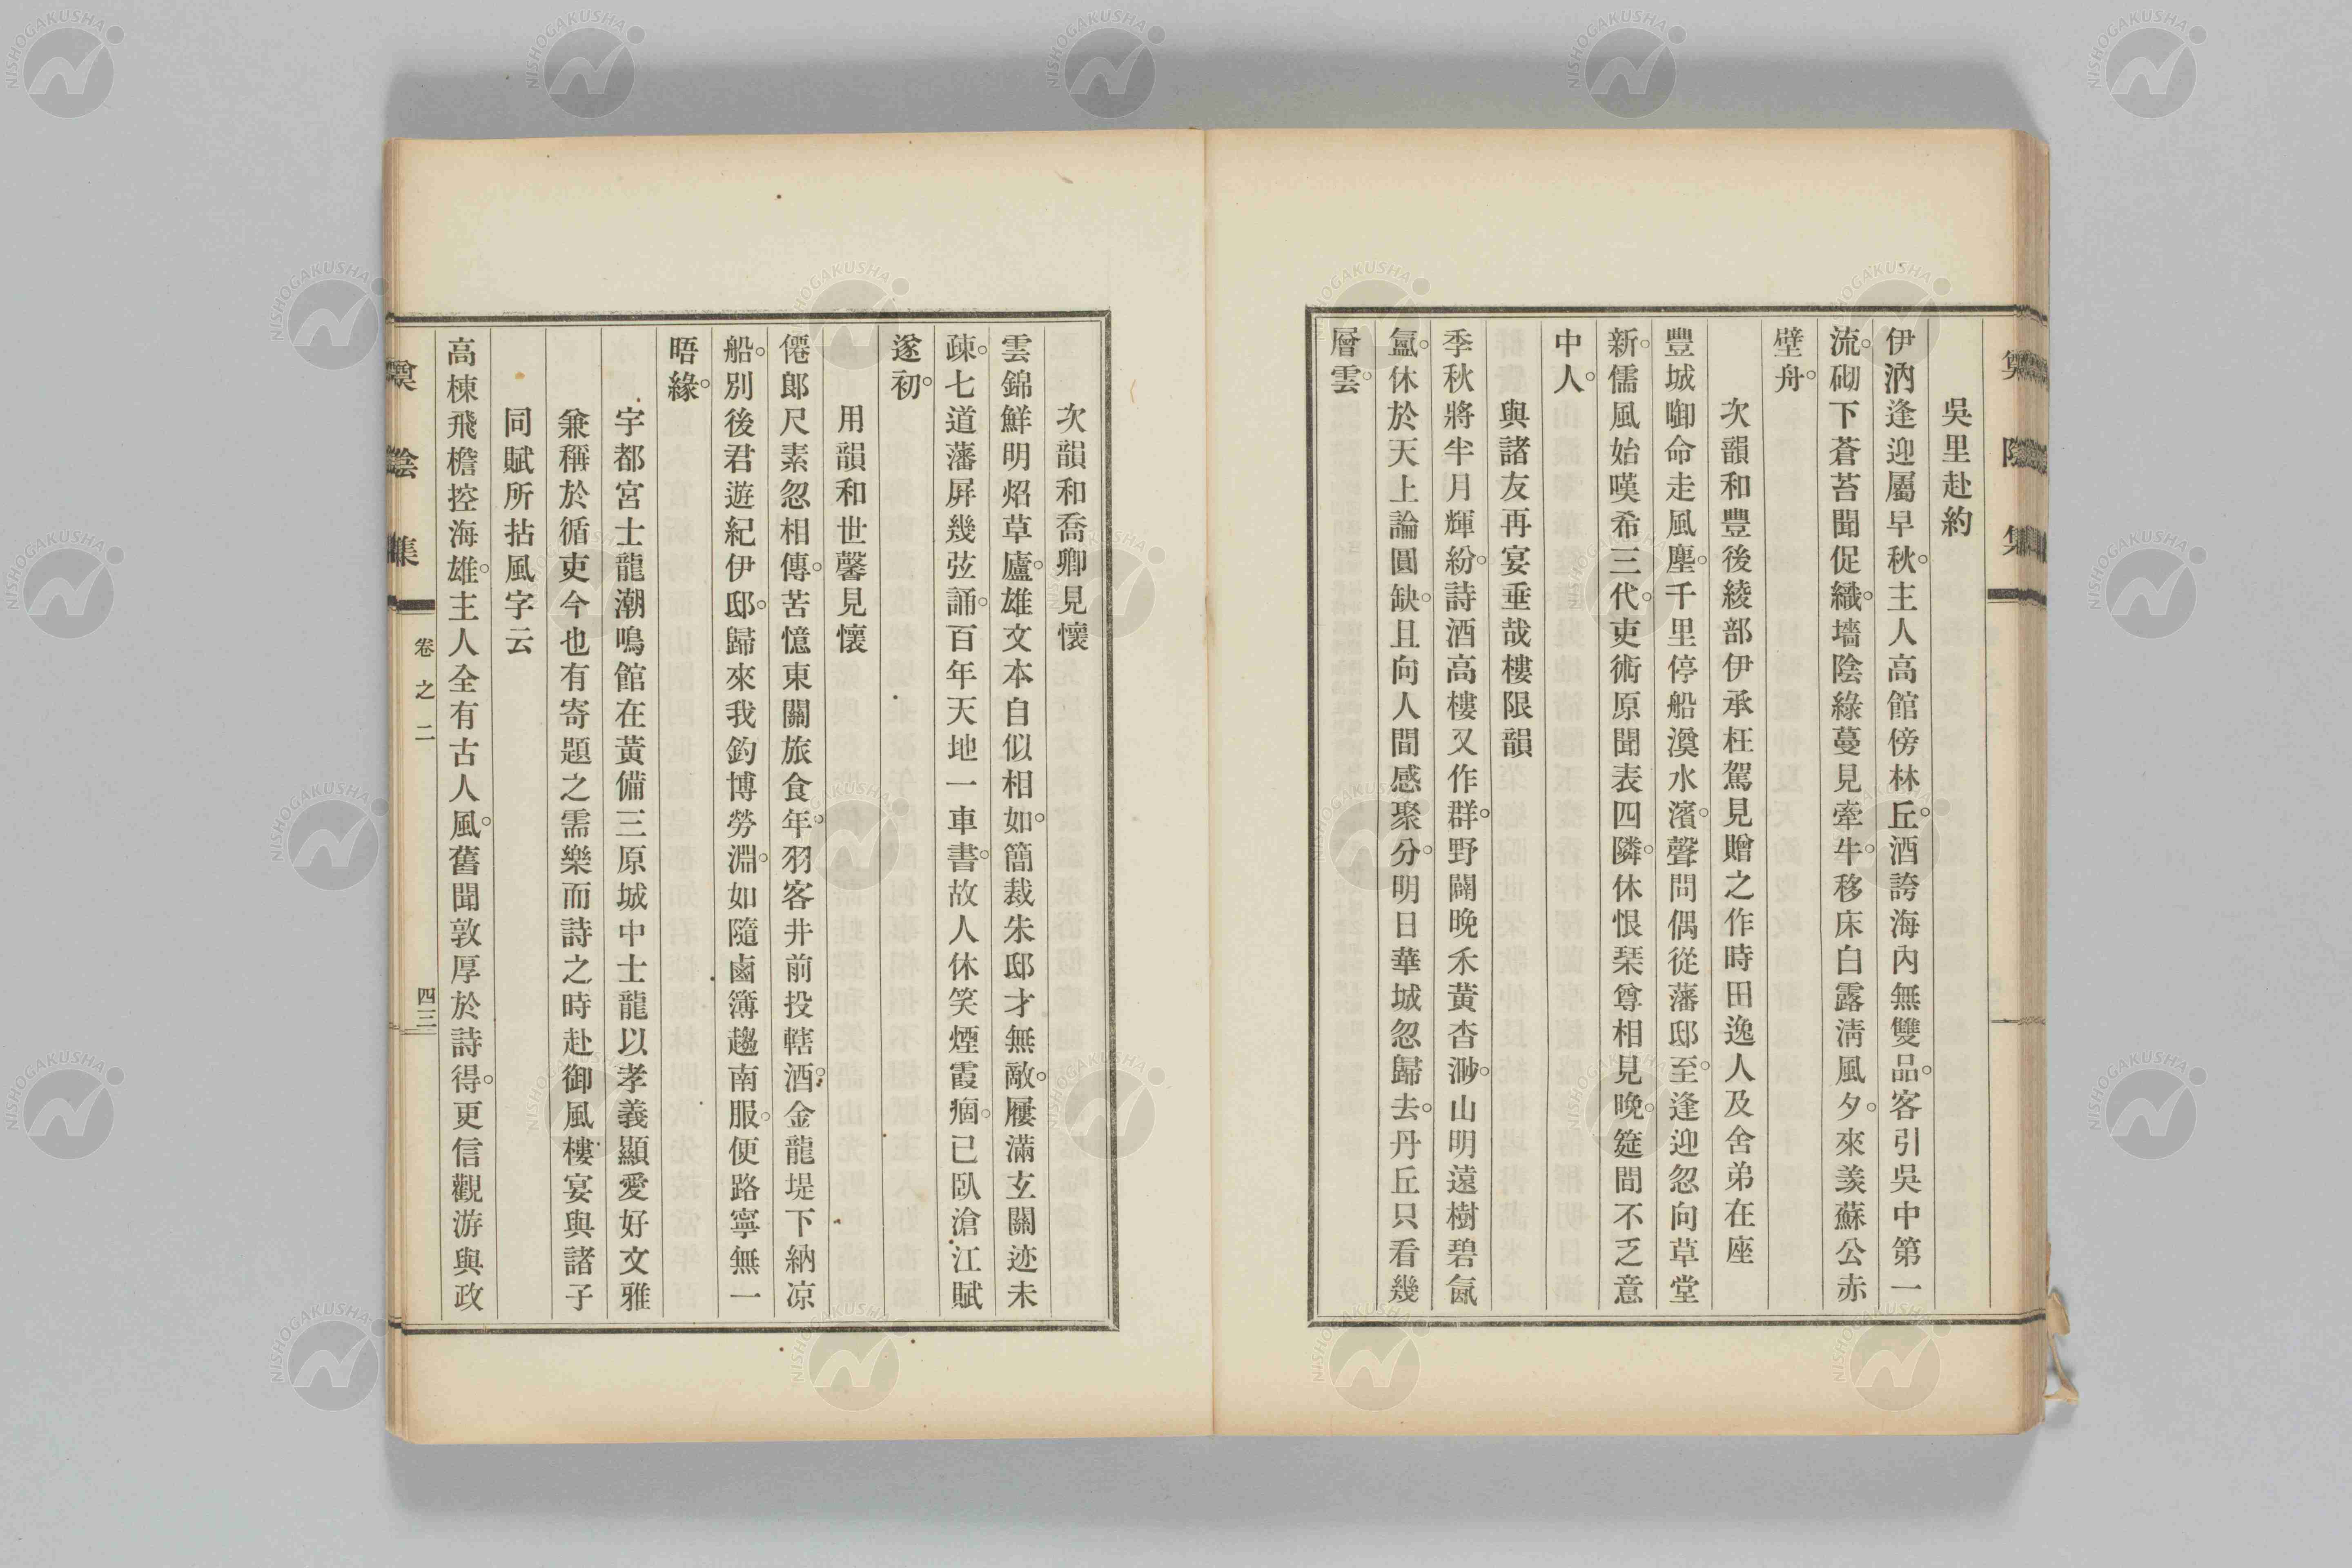 吳里赴約
伊汭逢迎屬早秋。主人高館傍林丘。酒誇海內無雙品。客引吳中第一
流。砌下蒼苔聞促織。墻陰綠蔓見牽牛。移床白露淸風夕。來羨蘇公赤
壁舟。
次韻和豐後綾部伊承枉駕見贈之作時田逸人及舍弟在座
豐城啣命走風塵。千里停船渙水濱。聲問偶從藩邸至。逢迎忽向草堂
新。儒風始嘆希三代。吏術原聞表四隣。休恨琹尊相見晚。筵間不乏意
中人。
與諸友再宴垂哉樓限韻
季秋將半月輝紛。詩酒高樓又作群。野闊晚禾黃杳渺。山明遠樹碧氤
氳。休於天上論圓缺。且向人間感聚分。明日華城忽歸去。丹丘只看幾
層雲。
次韻和喬卿見懷
雲錦鮮明焰草廬。雄文本自似相如。簡裁朱邸才無敵。屨滿玄關迹未
疎。七道藩屛幾弦誦。百年天地一車書。故人休笑煙霞痼。已臥滄江賦
遂初。
用韻和世馨見懷
僊郞尺素忽相傳。苦憶東關旅食年。羽客井前投轄酒。金龍堤下納凉
船。別後君遊紀伊邸。歸來我釣博勞淵。如隨鹵簿趨南服。便路寧無一
晤緣。
宇都宮士龍潮鳴館在黃備三原城中士龍以孝義顯愛好文雅
兼稱於循吏今也有寄題之需樂而詩之時赴御風樓宴與諸子
同賦所拈風字云
高棟飛檐控海雄。主人全有古人風。舊聞敦厚於詩得。更信觀游與政
卷之二
四三
NISHOGAKUSHA